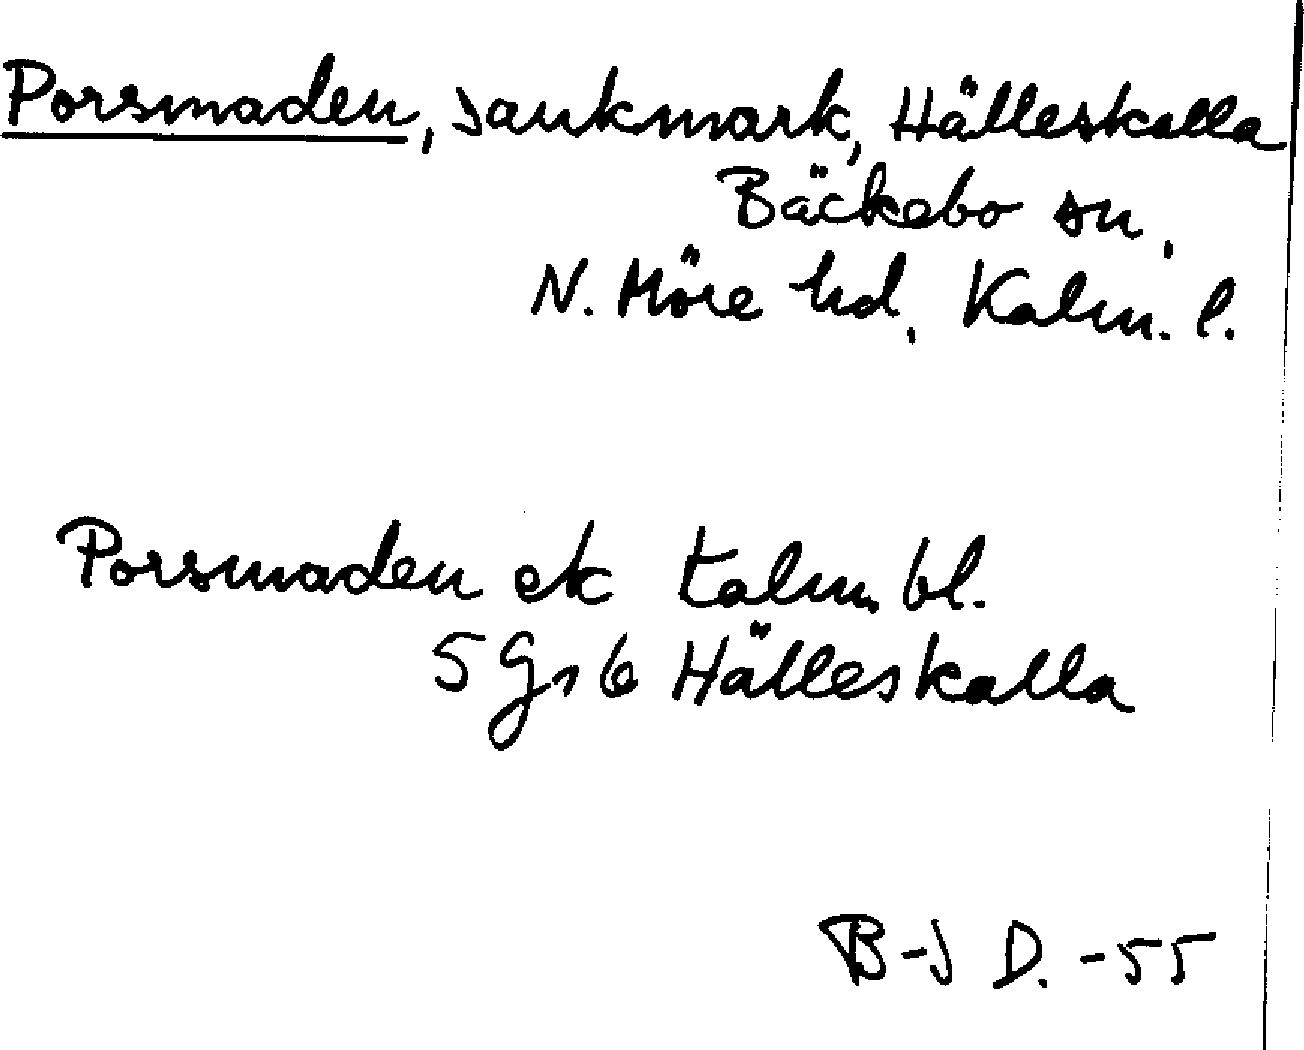 Porsmaden, sankmark, Hälleskalla
Bäckebo sn,
N. Möre hd, Kalm. l.
Porsmaden ek kalm. bl.
5 G 1 b Hälleskalla
B-J D. -55